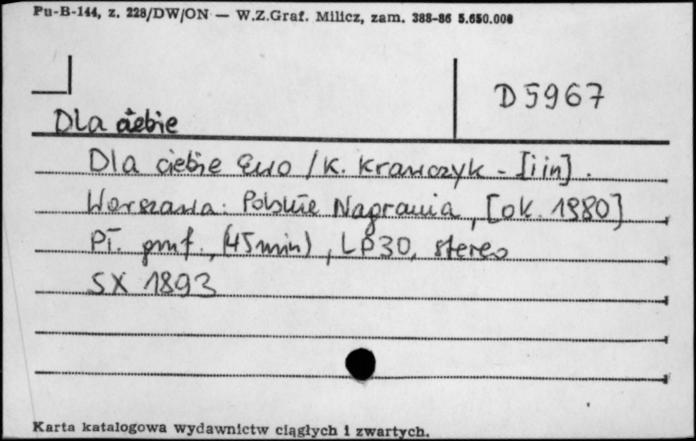 Pu-B-144, z. 228/DW/ON — W.Z.Graf. Milicz, zam. 388-86 5.650.000
D 5967
Dla ciebie
Dla ciebie Ewo / K. Krawczyk - [i in].
Warszawa: Polskie Nagrania, [ok. 1980]
Pł. gmf., (45 min), LP30, stereo
SX 1893
Karta katalogowa wydawnictw ciągłych i zwartych.